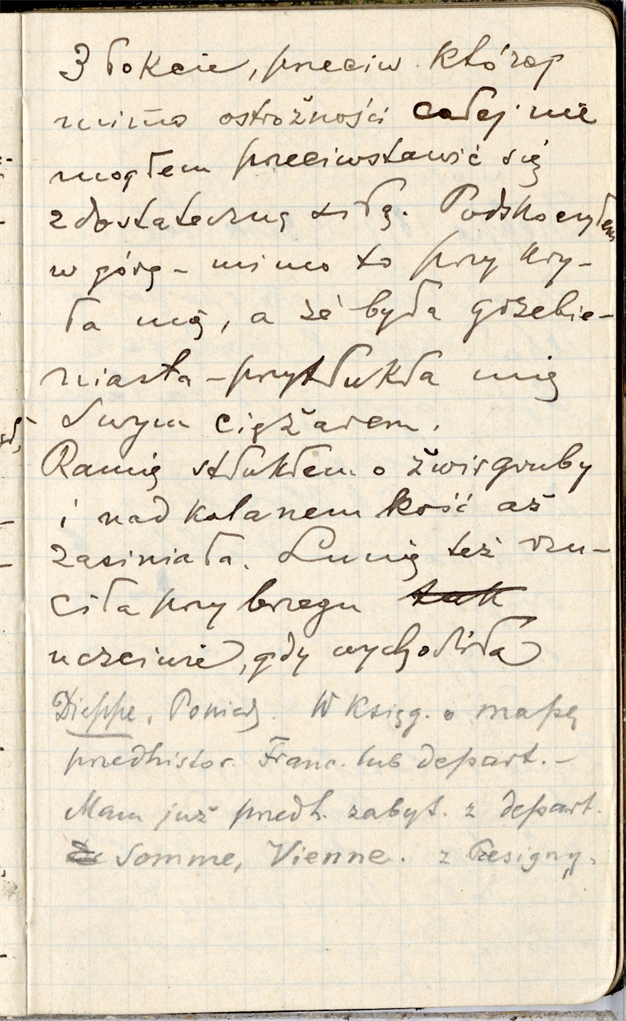 3 łokcie, przeciw której
mimo ostrożności całej nie
mogłem przeciwstawić się
z dostateczną siłą. Podskoczyłem
w górę – mimo to przykry-
ła mię, a że była grzebie-
niasta – przytłukła mię
swym ciężarem.
Ramię stłukłem o żwir gruby
i nad kolanem kość aż
zasiniała. Lunię też rzu-
ciła przy brzegu tak
uczciwie, gdy wychodziła
Dieppe, Poniedz. W Księg. o mapę
przedhistor. Franc. lub depart. –
Mam już przedh. zabyt. z depart.
Somme, Vienne. z